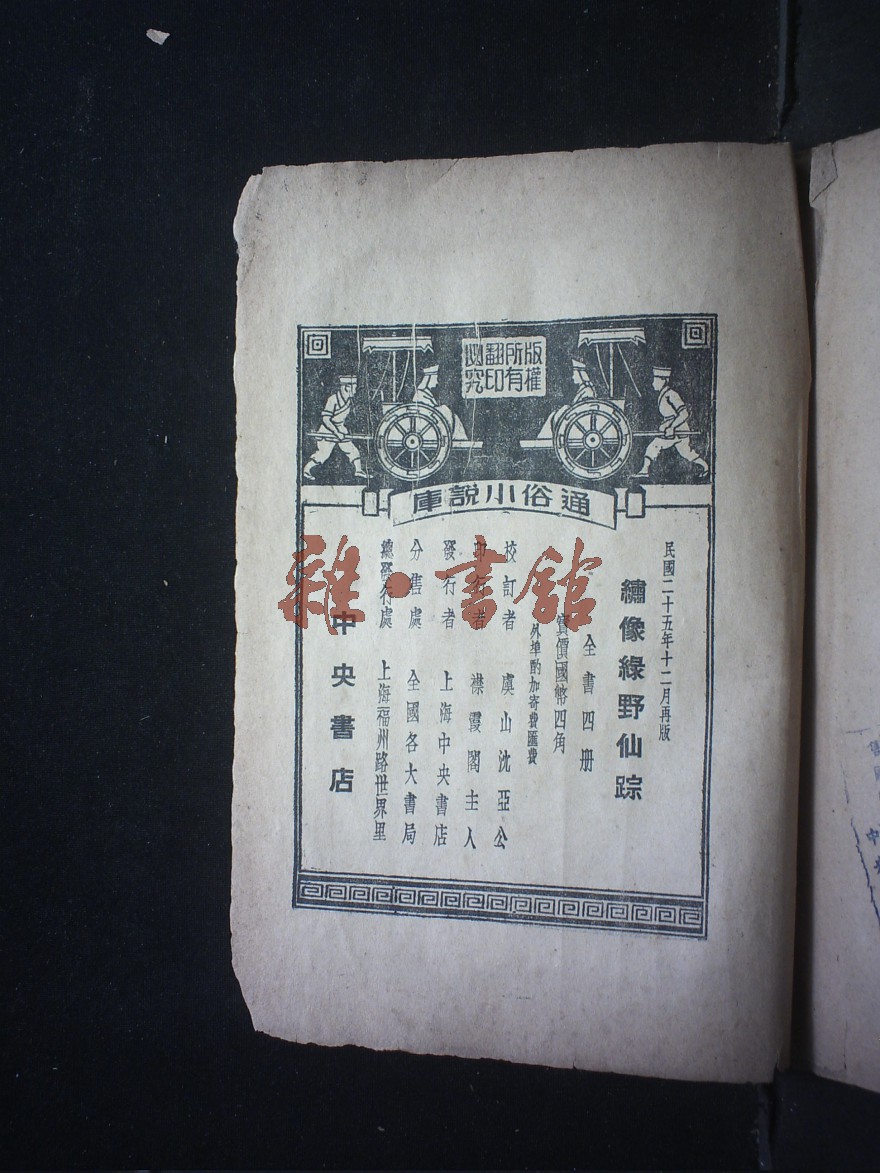 版權
所有
翻印
必究
通俗小説庫
民國二十五年十二月再版
繡像綠野仙踪
全書四册
實價國幣四角
外埠酌加寄費匯費
校訂者 虞山沈亞公
印行者 襟霞閣主人
發行者 上海中央書店
分售處 全國各大書局
總發行處 上海福州路世界里
中央書店
雜·書館